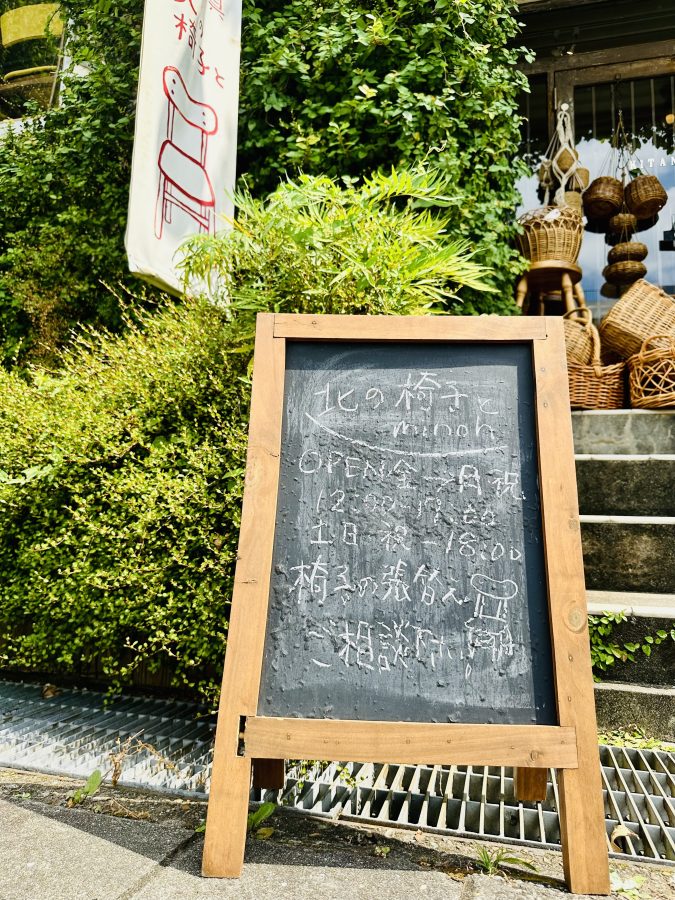 の
椅子と
KITAN
北の椅子と
minoh
OPEN 金→月祝
12:00-17:00
土日祝-18:00
椅子の張替え
ご相談